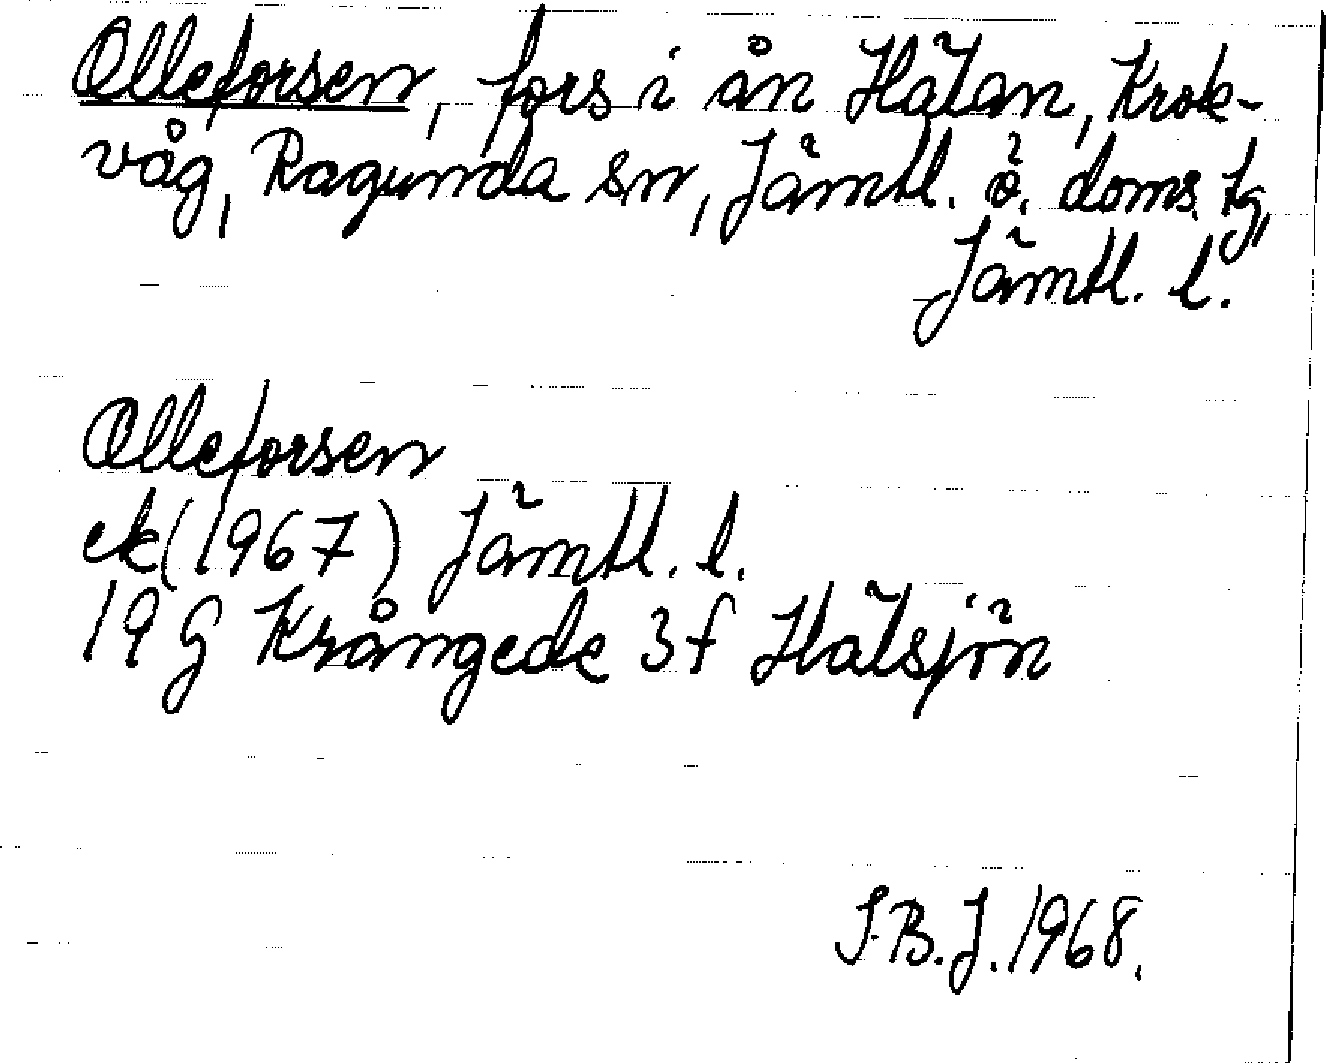 Olleforsen, fors i ån Hätan, Krok-
våg, Ragunda sn, Jämtl. ö. doms. tg,
Jämtl. l.
Olleforsen
ek (1967) Jämtl. l.
19 G Krångede 3 f Hätsjön
S.B.J. 1968.